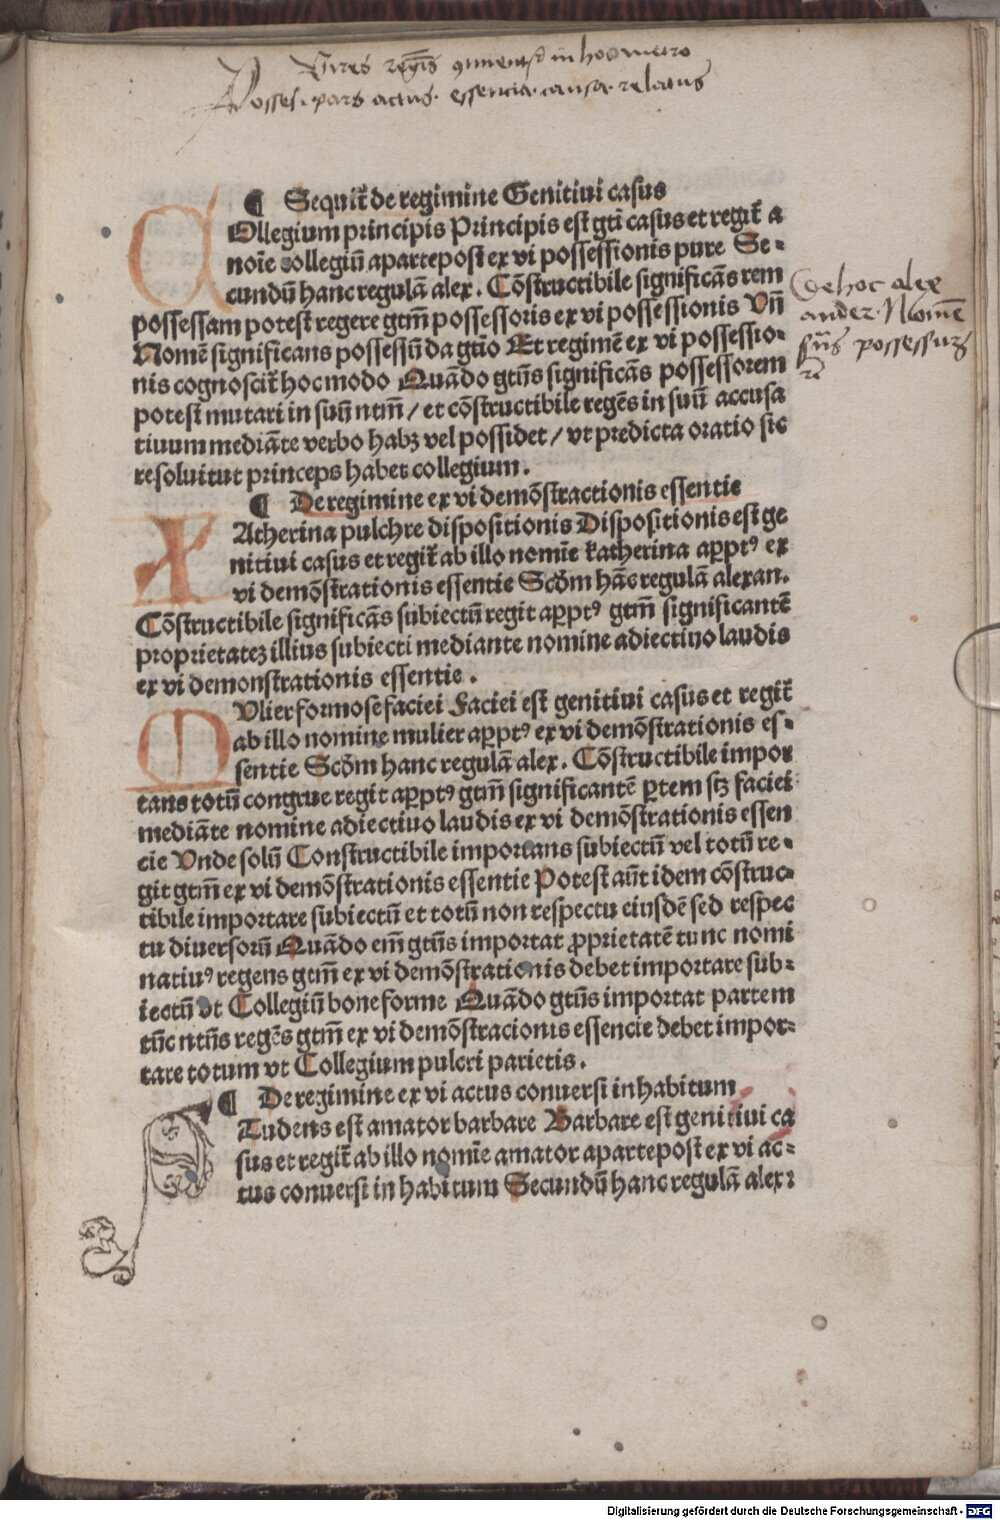 Vires regĩs ꝯtinent᷑ in hoc metro
Posses. pars actus. essencia. causa. relatus
¶ Sequit᷑ de regimine Genitiui casus
COllegium principis Principis est gti casus et regit᷑ a
noīe collegiū aparte post ex vi possessionis pure Se⸗
cundū hanc regulā alex. Cōstructibile significās rem
possessam potest regere gtm̄ possessoris ex vi possessionis Vn̄
Nomē significans possessū da gtīo Et regimē ex vi possessio⸗
nis cognoscit᷑ hoc modo Quādo gtūs significās possessorem
potest mutari in suū ntm̄ / et cōstructibile regēs in suū accusa
tiuum mediāte verbo habꝫ vel possidet / vt predicta oratio sic
resoluitur princeps habet collegium.
¶ De regimine ex vi demōstractionis essentie
KAtherina pulchre dispositionis Dispositionis est ge
nitiui casus et regit᷑ ab illo nomīe katherina aꝑptꝰ ex
vi demōstrationis essentie Scd̄m hāc regulā alexan.
Cōstructibile significās subiectū regit aꝑptꝰ gtm̄ significantē
proprietateꝫ illius subiecti mediante nomine adiectiuo laudis
ex vi demonstrationis essentie.
MVlier formose faciei Faciei est genitiui casus et regit᷑
ab illo nomine mulier aꝑptꝰ ex vi demōstrationis es⸗
sentie Scd̄m hanc regulā alex. Cōstructibile impor
tans totū congrue regit aꝑptꝰ gtm̄ significantē ꝑtem scꝫ faciei
mediāte nomine adiectiuo laudis ex vi demōstrationis essen
cie Vnde solū Constructibile importans subiectū vel totū re⸗
git gtm̄ ex vi demōstrationis essentie Potest aūt idem cōstruc⸗
tibile importare subiectū et totū non respectu eiusdē sed respec
tu diuersorū Quādo em̄ gtūs importat ꝓprietatē tunc nomi
natiuꝰ regens gtm̄ ex vi demōstrationis debet importare sub⸗
iectū vt Collegiū bone forme Quādo gtūs importat partem
tūc ntūs regēs gtm̄ ex vi demōstracionis essencie debet impor⸗
tare totum vt Collegium pulcri parietis.
¶ De regimine ex vi actus conuersi in habitum
STudens est amator barbare Barbare est genitiui ca
sus et regit᷑ ab illo nomīe amator aparte post ex vi ac⸗
tus conuersi in habitum Secundū hanc regulā alex:
de hoc alex
ander. Nomē
sūs possessuꝫ
Digitalisierung gefördert durch die Deutsche Forschungsgemeinschaft - DFG